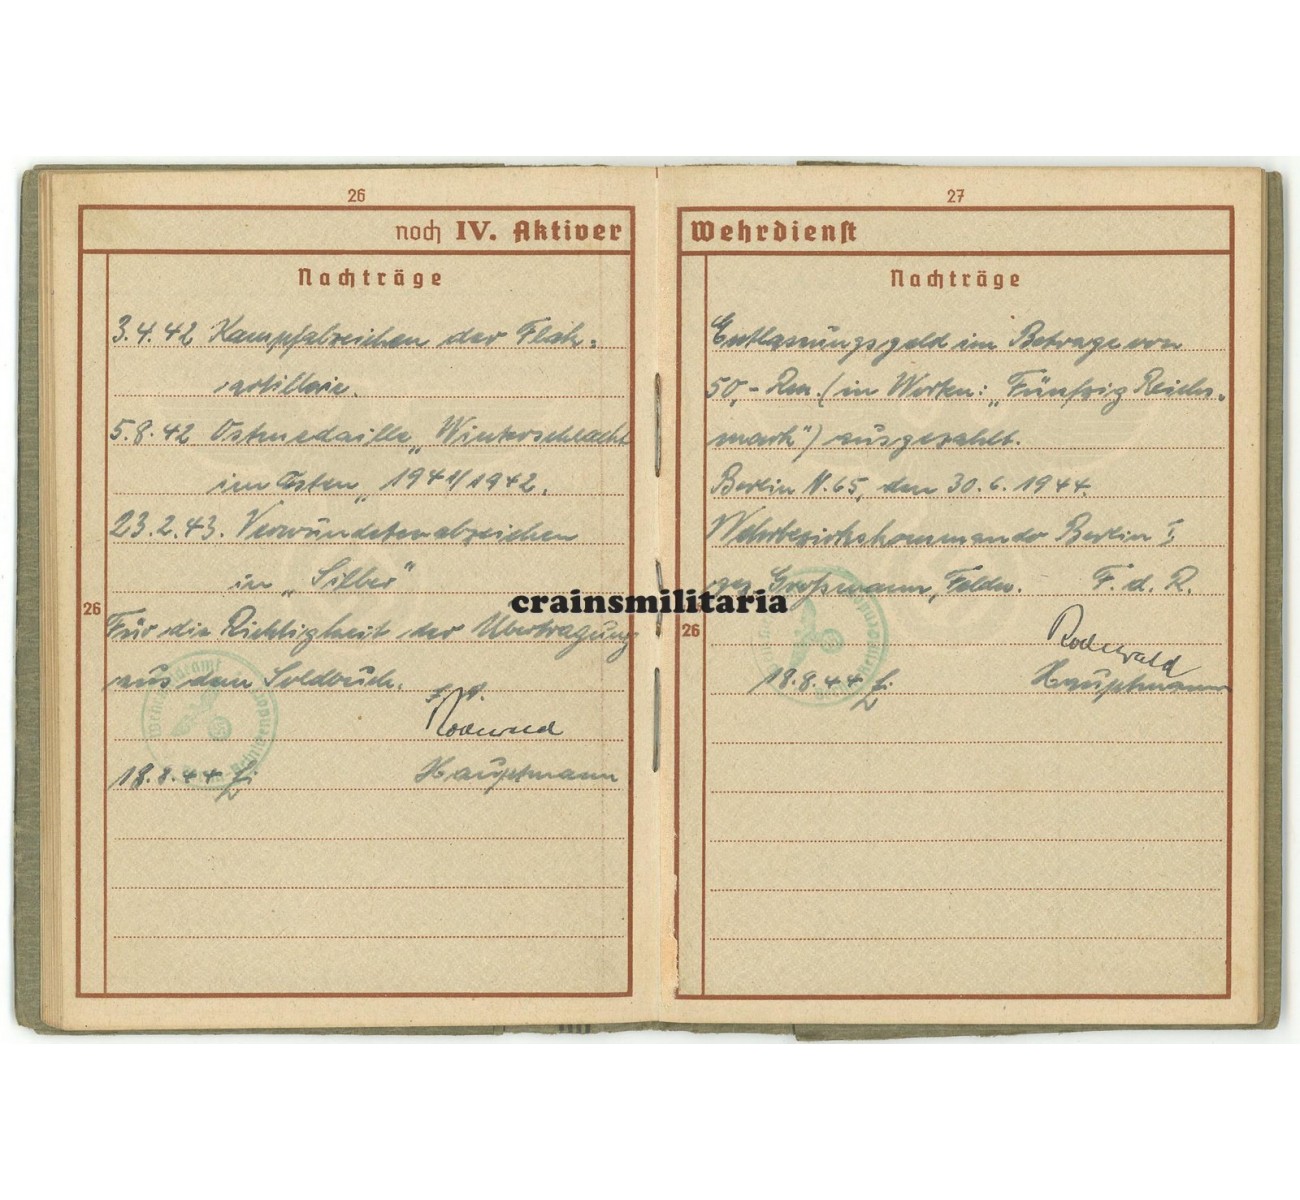 26
noch IV. Aktiver
Nachträge
3.4.42 Kampfabzeichen der Flak-
artillerie.
5.8.42 Ostmedaille „Winterschlacht
im Osten" 1941/1942.
23.2.43. Verwundetenabzeichen
in „Silber"
26
Für die Richtigkeit der Übertragung
aus dem Soldbuch.
Rodewald
18.8.44
Hauptmann
27
Wehrdienst
Nachträge
Entlassungsgeld im Betrage von
50,- Rm. (in Worten: „Fünfzig Reichs-
mark") ausgezahlt.
Berlin N. 65, den 30.6.1944.
Wehrbezirkskommando Berlin I,
gez. Großmann, Feldw. F. d. R.
26
Rodewald
18.8.44
Hauptmann
crainsmilitaria